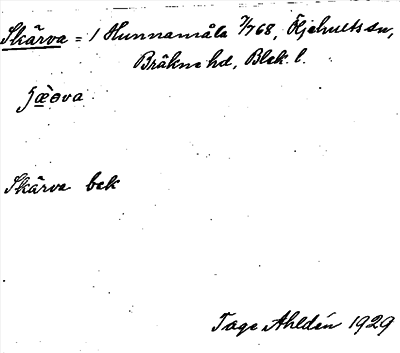 Skärva = 1 Hunnamåla 7/768, Öljehults sn,
Bräkne hd, Blek. l.
Skärva bek
Tage Ahldén 1929